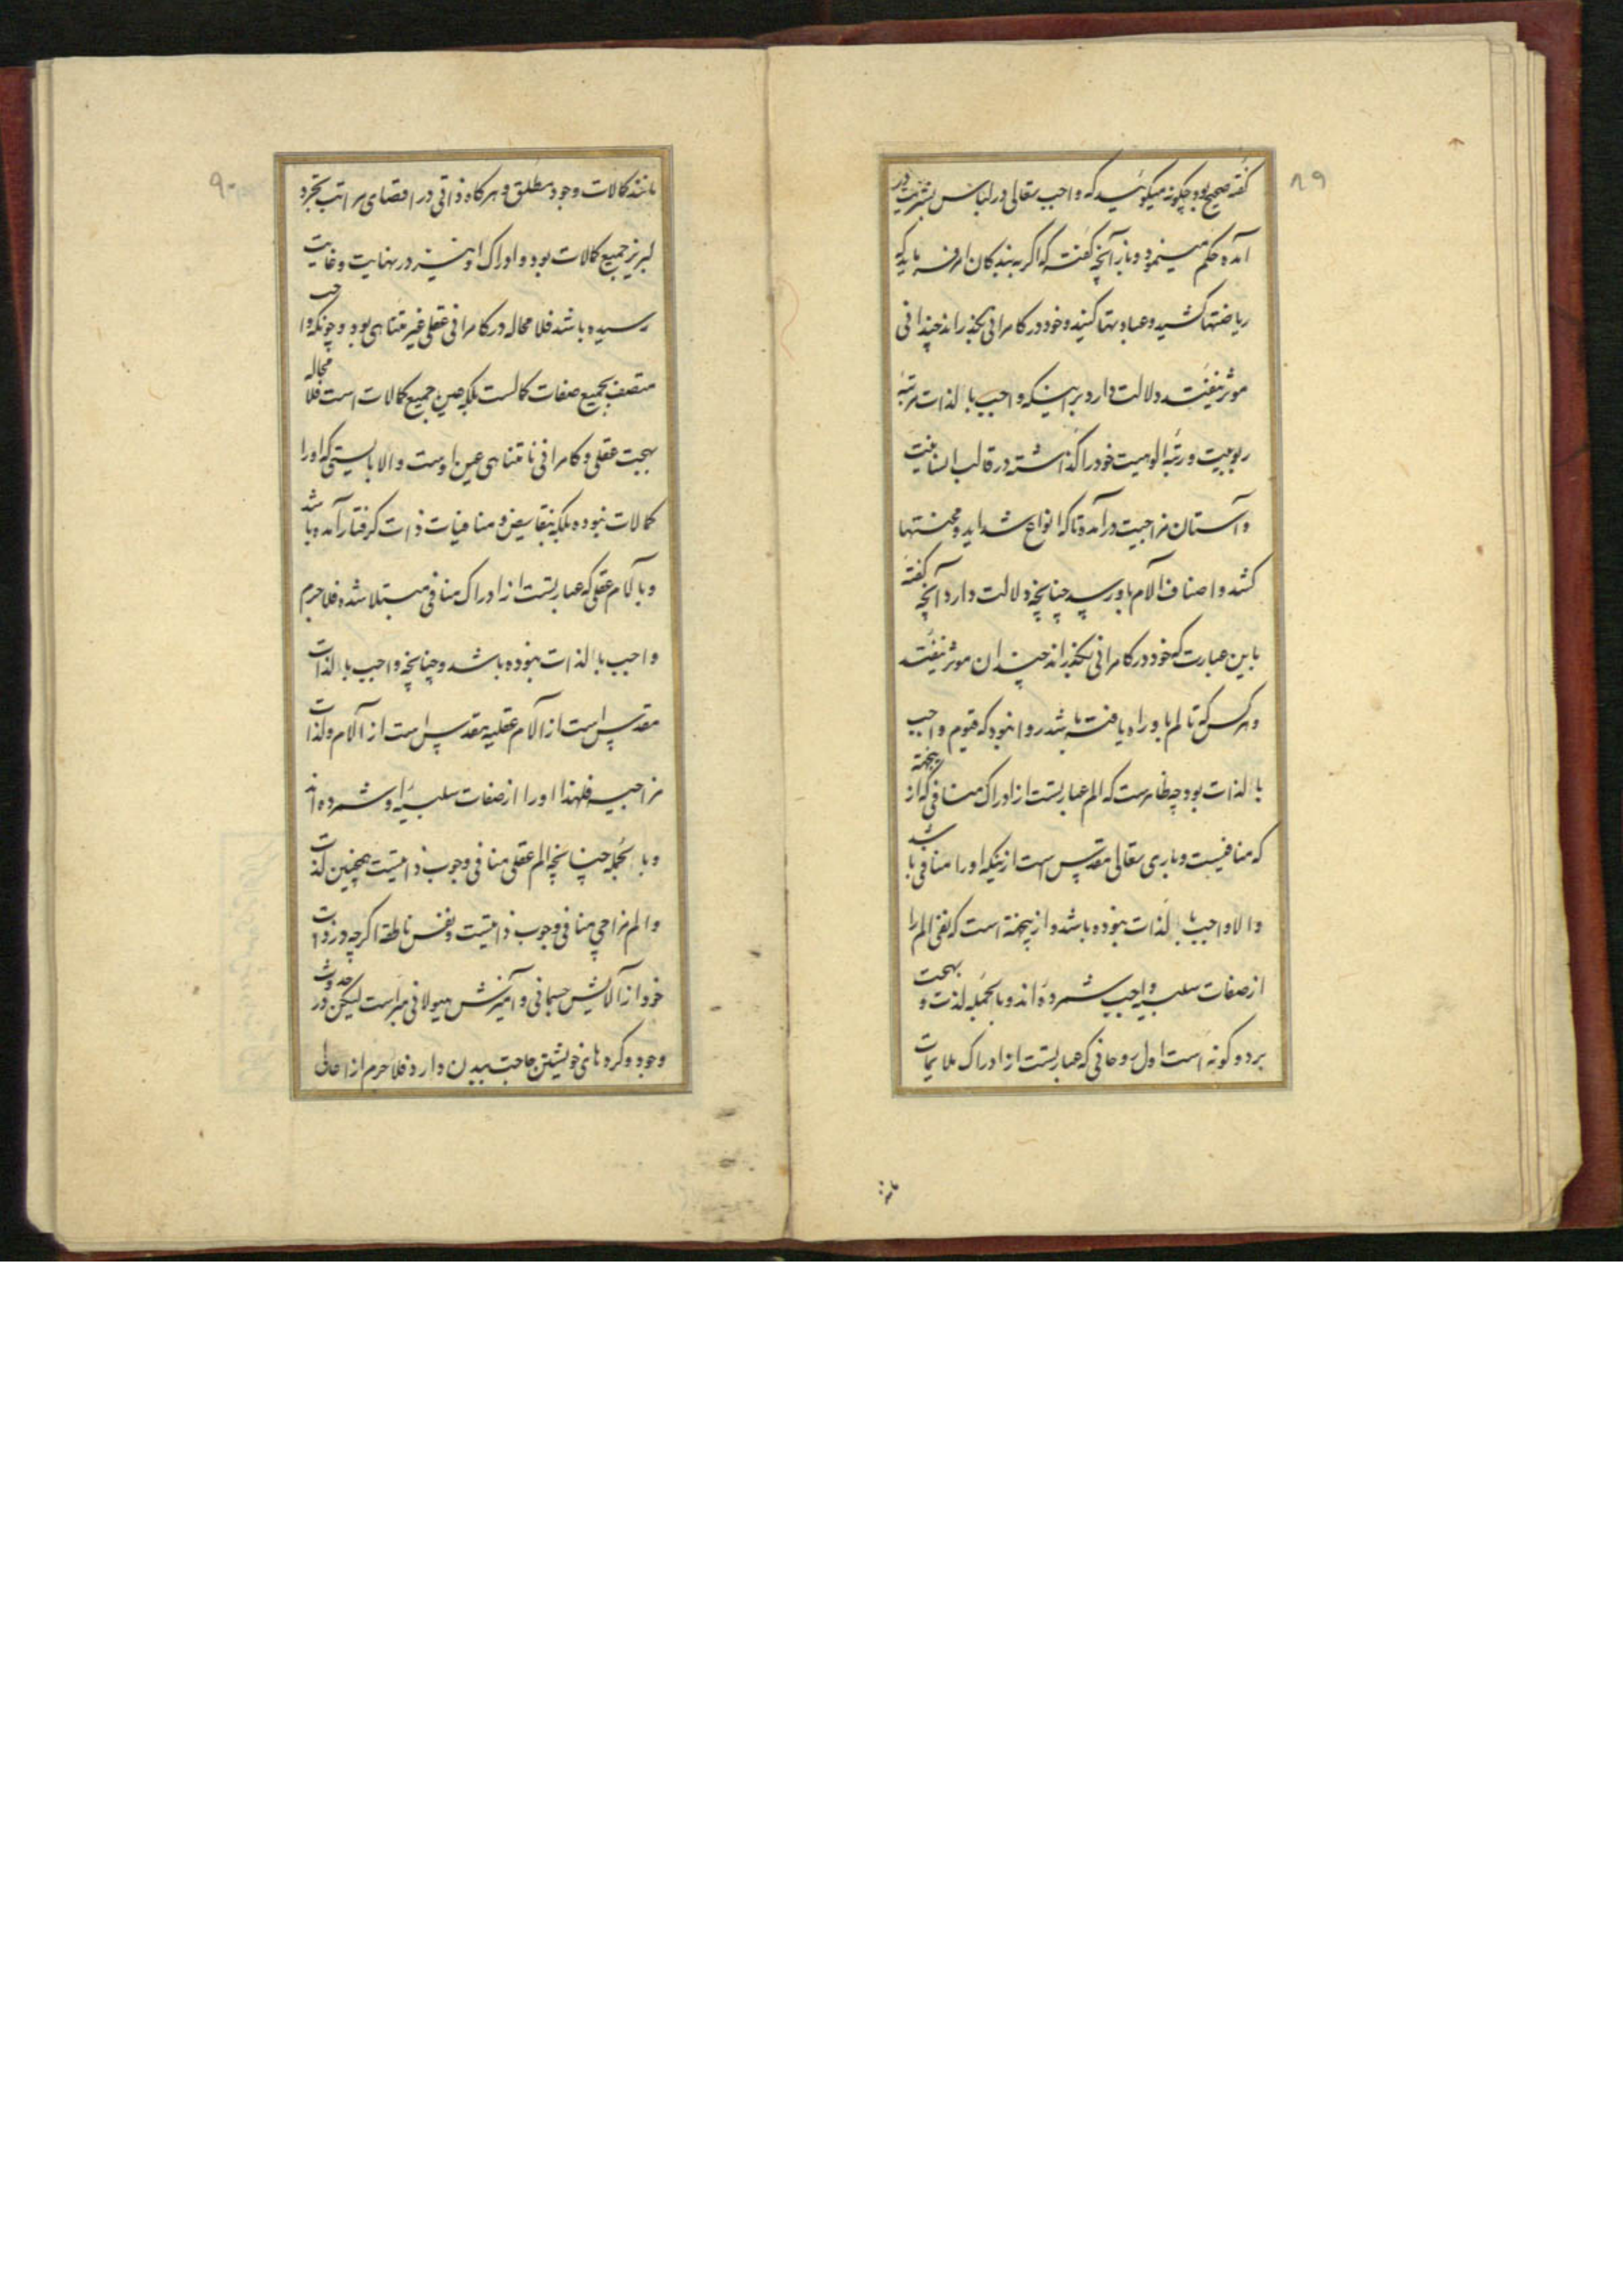 ۸۹
گفته صحیح بود چگونه میگوئید که واجب تعالی در لباس بشریت در
آمده حکم مینمود و باز آنچه گفته که اگر به بندکان امر فرماید که
ریاضتها کشید و عبادتها کنید و خود در کامرانی بگذراند چندانی
موثر نیفتد دلالت دارد بر اینکه واجب بالذات مرتبهٔ
ربوبیت و رتبهٔ الوهیت خود را گذاشته در قالب انسانیت
و آستان مزاجیت درآمده تا که انواع شداید و محنتها
کشد و اصناف آلام باو رسد چنانچه دلالت دارد آنچه گفته
باین عبارت که خود در کامرانی بگذراند چندان موثر نیفتد
و هرکس که تالم باو راه یافته باشد روا نبود که قیوم واجب
بالذات بود چه ظاهرست که الم عبارتست از ادراک منافی از آنجهته که
که منافیست و باری تعالی مقدس است ازینکه او را منافی باشد
والا واجب بالذات نبوده باشد و ازینجهته است که نفی الم را
از صفات سلبیهٔ واجب شمرده اند و بالجمله لذت و بهجت
بر دو گونه است اول روحانی که عبارتست از ادراک ملایمات
مانند
۹۰
مانند کمالات وجود مطلق و هر کاه ذاتی در اقصای مراتب تجرد
لبریز جمیع کمالات بود و ادراک او نیز در نهایت و غایت
رسیده باشد فلا محاله در کامرانی عقلی غیر متناهی بود و چونکه واجب
متصف بجمیع صفات کمالست بلکه عین جمیع کمالات است فلا محاله
بهجت عقلی و کامرانی نامتناهی عین اوست والا بایستی که او را
کمالات نبوده بلکه بنقایض و منافیات ذات گرفتار آمده باشد
و بآلام عقلی که عبارتست از ادراک منافی مبتلا شده فلاجرم
واجب بالذات نبوده باشد و چنانچه واجب بالذات
مقدس است از آلام عقلیه مقدس است از آلام و لذات
مزاجیه فلهذا او را از صفات سلبیهٔ او شمرده اند
و بالجمله چنانچه الم عقلی منافی وجوب ذاتیست همچنین لذت
و الم مزاجی منافی وجوب ذاتیست و نفس ناطقه اگرچه در ذات
خود از آلایش جسمانی و آمیزش هیولانی مبراست لیکن در حدوث
وجود و کرده های خویشتن حاجت ببدن دارد فلاجرم از